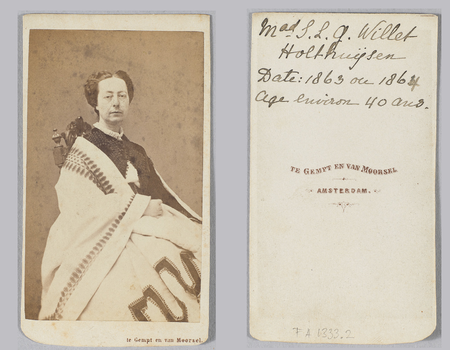 te Gempt en van Moorsel.
Mad S. L. G. Willet
Holthuijsen
Date: 1863 ou 1864
Age environ 40 ans.
TE GEMPT EN VAN MOORSEL
AMSTERDAM.
F A 1333.2